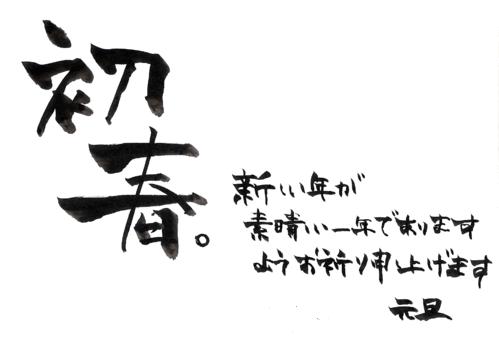 初
春。
新しい年が
素晴しい一年であります
ようお祈り申し上げます
元旦